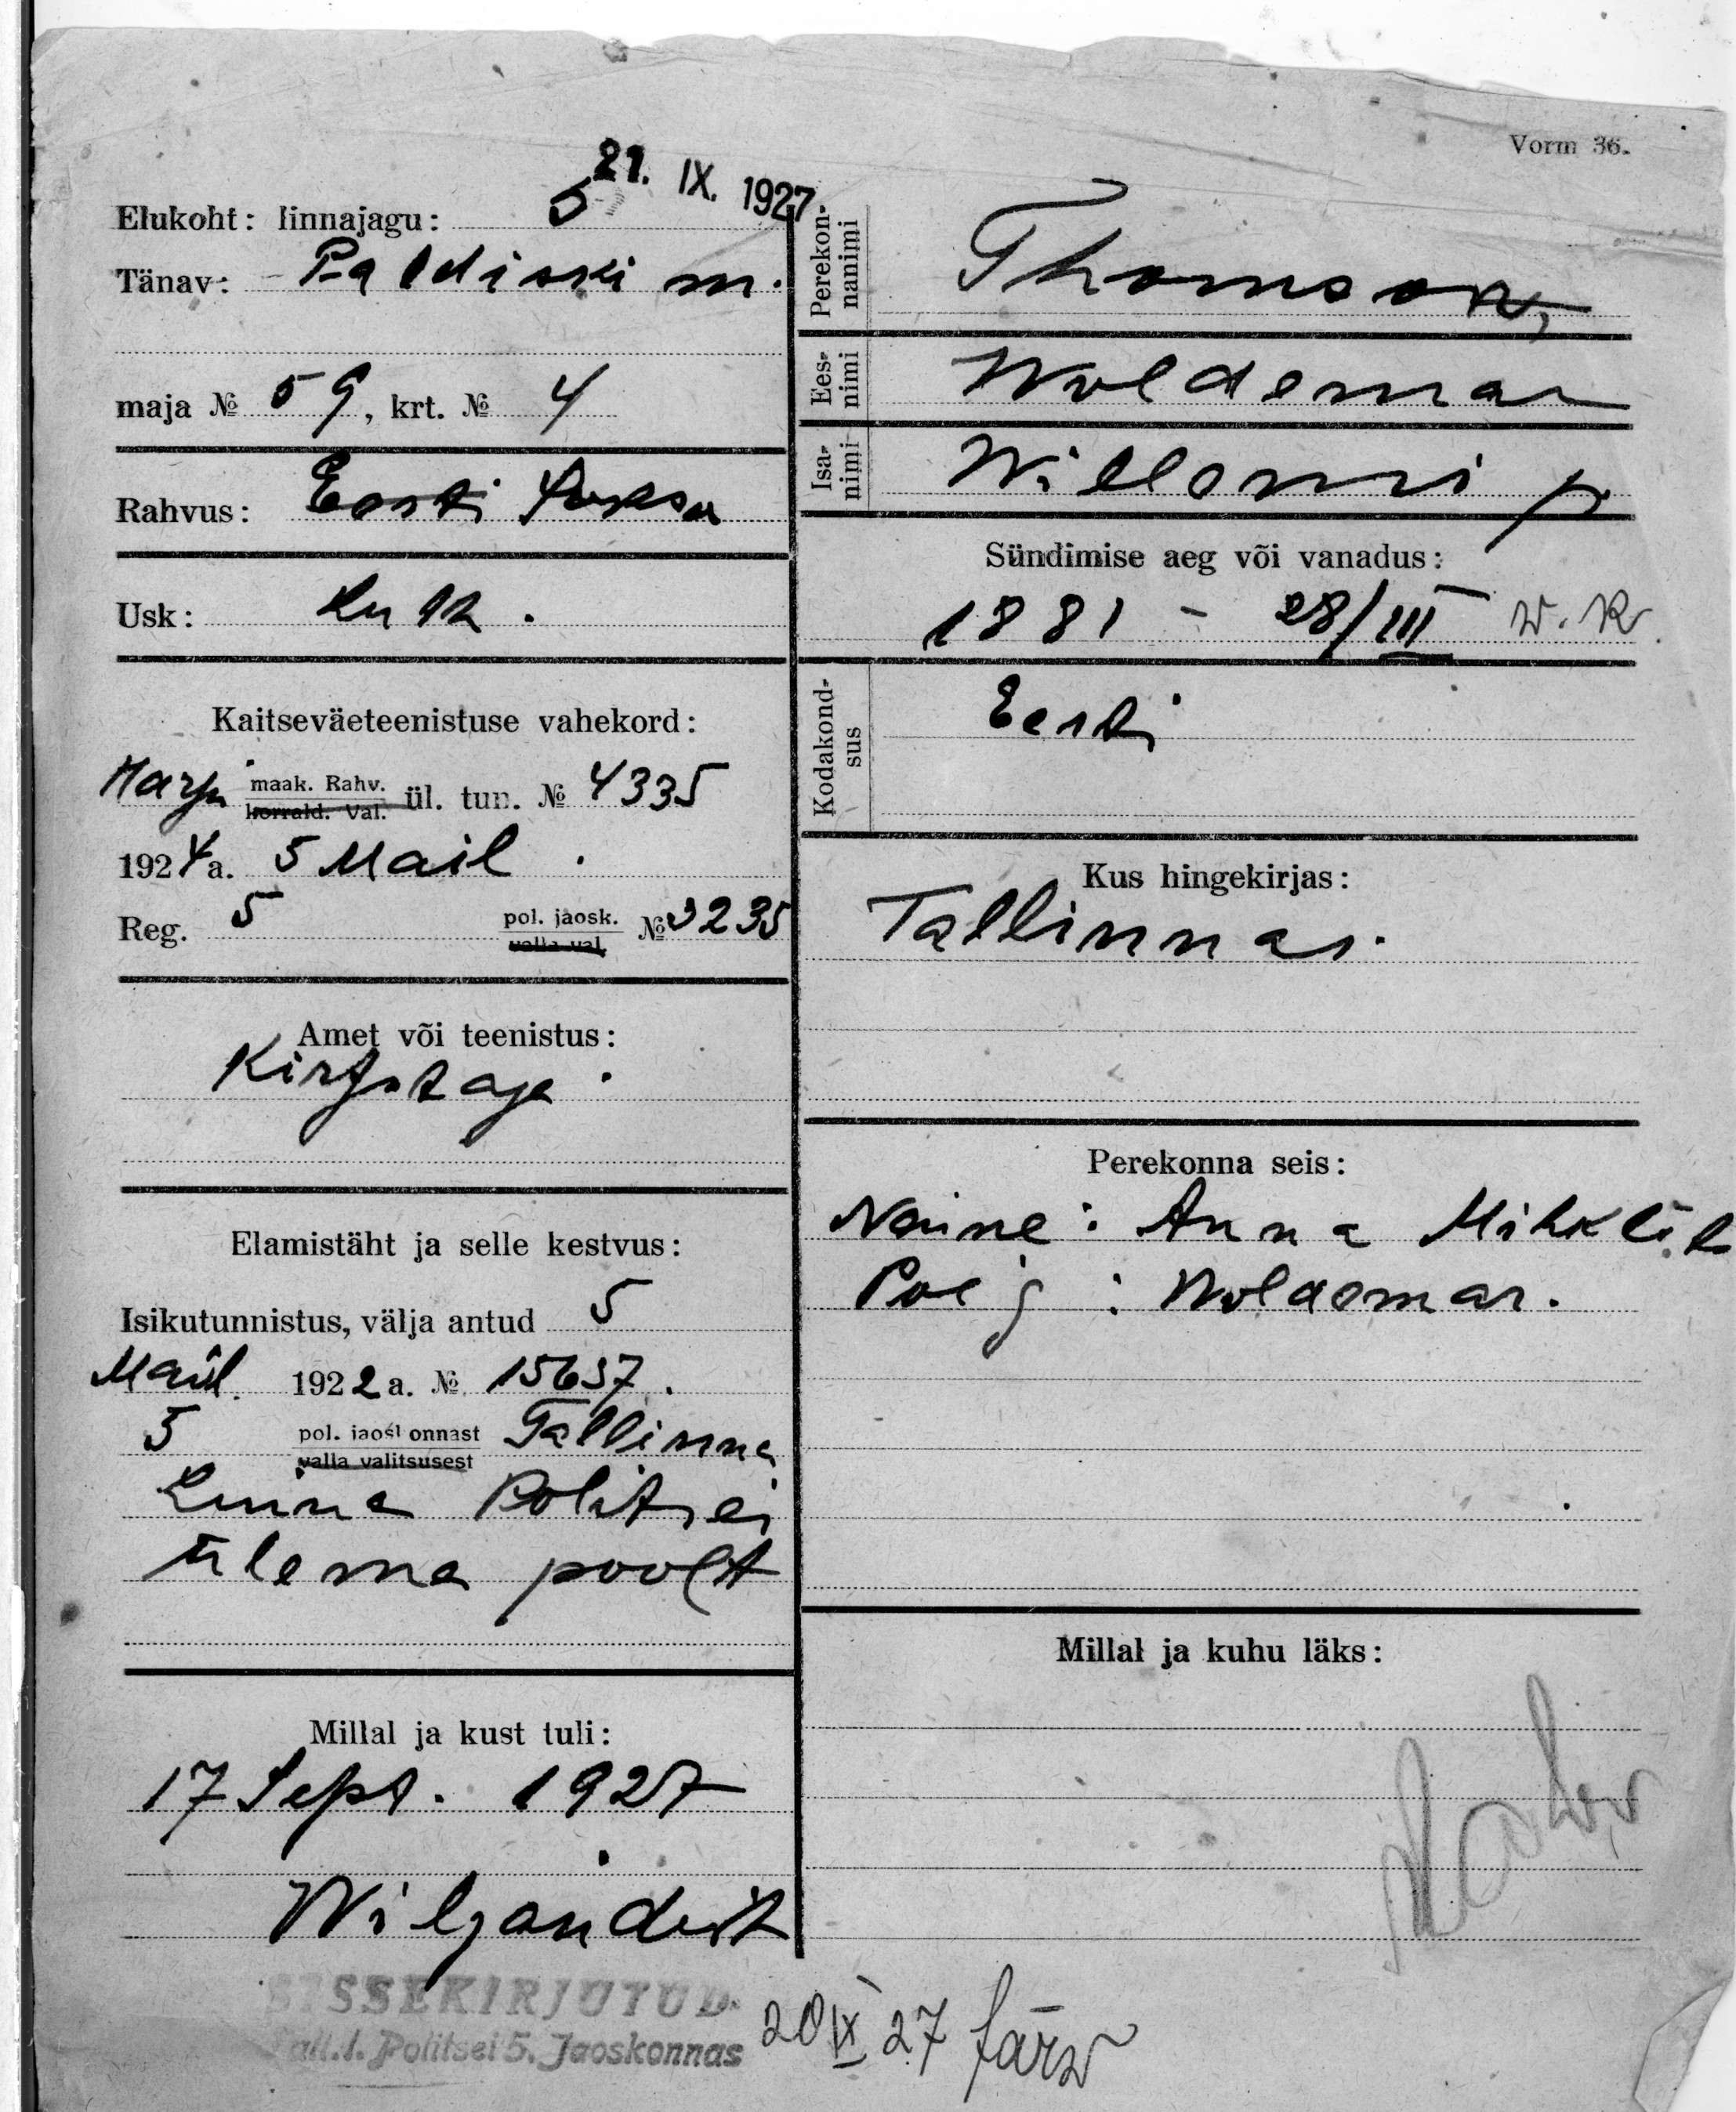 Vorm 36.
21. IX. 1927
Elukoht: linnajagu: 5
Tänav: Paldiski m.
maja № 59, krt. № 4
Rahvus: Eesti
Usk: Luth.
Kaitseväeteenistuse vahekord:
Harju maak. Rahv. ül. tun. № 4335
korrald. Val.
1924 a. 5 Mail.
Reg. 5 pol. jaosk. № 3235
valla val.
Amet või teenistus:
Kirjutaja.
Elamistäht ja selle kestvus:
Isikutunnistus, välja antud 5
Mail 1922 a. № 15657.
5 pol. jaoskonnast Tallinna
valla valitsusest
Linna Politsei
ülema poolt
Millal ja kust tuli:
17 Sept. 1927
Wiljandist
SISSEKIRJUTUD
Tall. l. Politsei 5. Jaoskonnas
20 IX 27
Perekonnanimi Thomson,
Eesnimi Woldemar
Isanimi Willemi p
Sündimise aeg või vanadus:
1881 - 28/III w. k.
Kodakondsus Eesti
Kus hingekirjas:
Tallinnas.
Perekonna seis:
Naine: Anna
Poeg: Woldemar.
Millal ja kuhu läks: